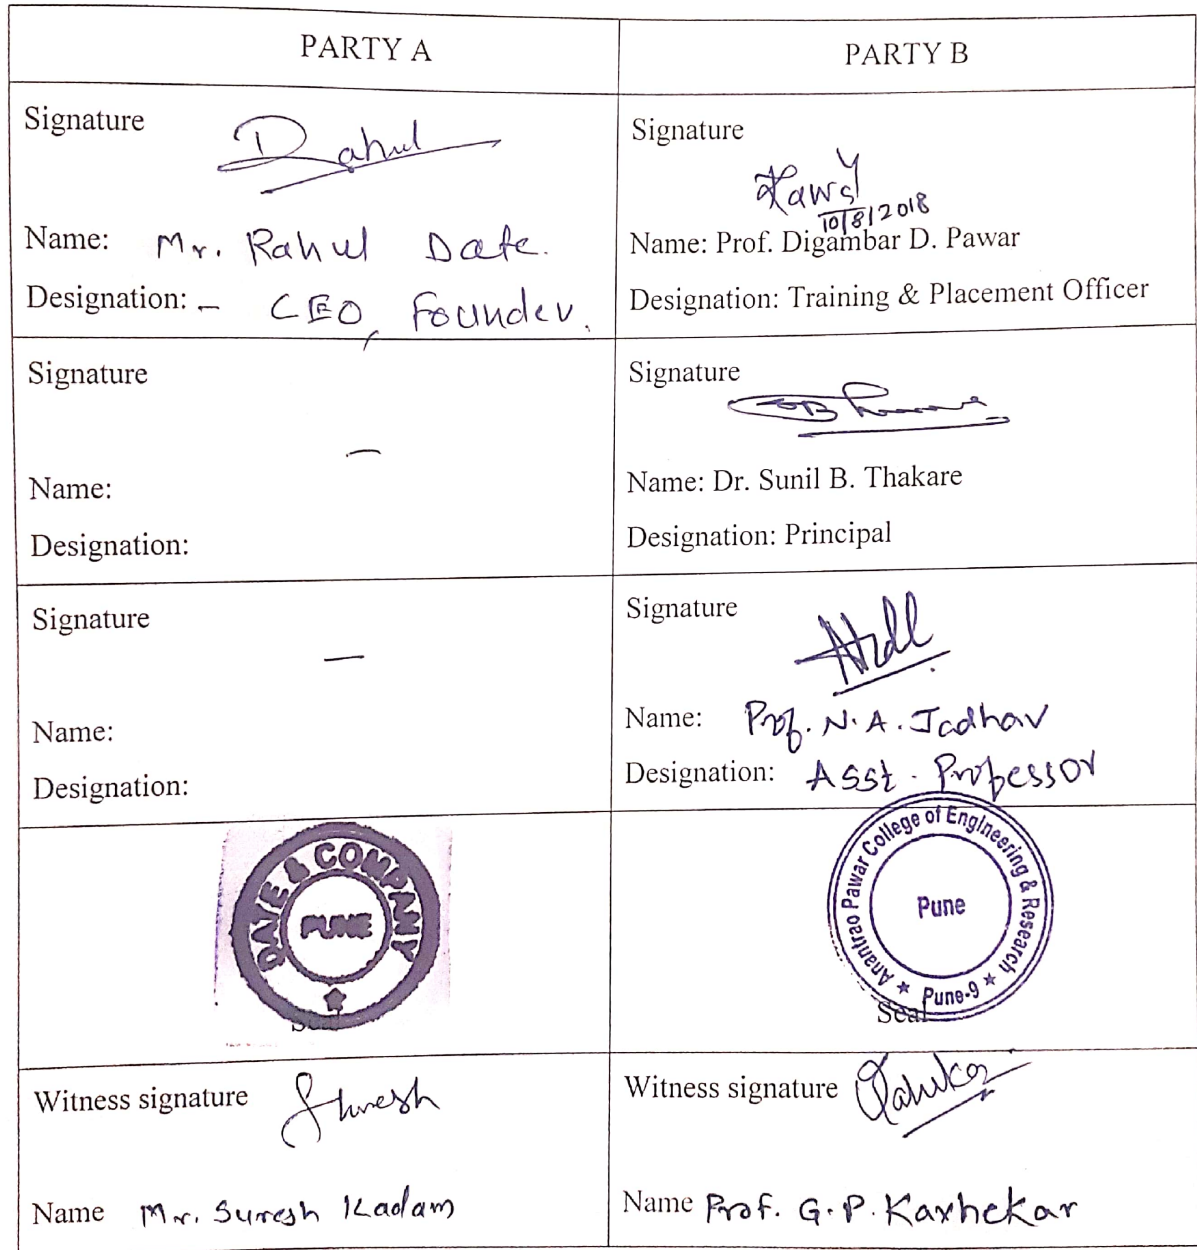 PARTY A
PARTY B
Signature
Rahul
Name: Mr. Rahul Date.
Designation: - CEO, Founder.
Signature
10/8/2018
Name: Prof. Digambar D. Pawar
Designation: Training & Placement Officer
Signature
—
Name:
Designation:
Signature
Name: Dr. Sunil B. Thakare
Designation: Principal
Signature
—
Name:
Designation:
Signature
Name: Prof. N. A. Jadhav
Designation: Asst. Professor
& COMPANY
PUNE
Seal
Anantrao Pawar College of Engineering & Research
Pune
★ Pune-9 ★
Seal
Witness signature Suresh
Name Mr. Suresh Kadam
Witness signature
Name Prof. G. P. Karhekar